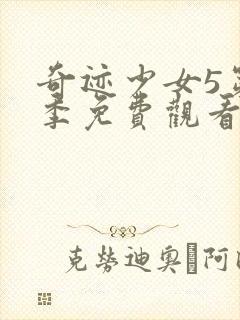 奇迹少女5第
季免費觀看
克劳迪奥·阿